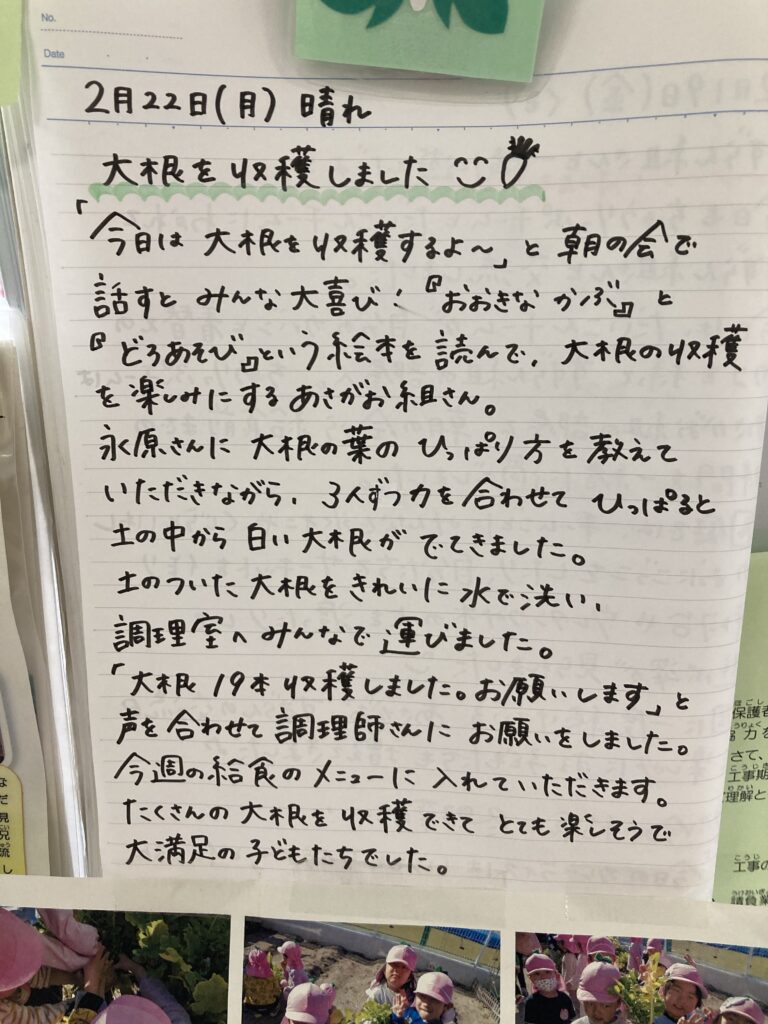 No.
Date
2月22日(月) 晴れ
大根を収穫しました
「今日は 大根を収穫するよ〜」と 朝の会で
話すと みんな大喜び！『おおきな かぶ』と
『どろあそび』という絵本を 読んで、大根の収穫
を楽しみにするあさがお組さん。
永原さんに 大根の葉の ひっぱり方を教えて
いただきながら、3人ずつ力を合わせて ひっぱると
土の中から 白い大根が でてきました。
土のついた 大根をきれいに 水で洗い、
調理室へ みんなで運びました。
「大根 19本収穫しました。お願いします」と
声を合わせて調理師さんに お願いをしました。
今週の給食のメニューに 入れていただきます。
たくさんの 大根を収穫できて とても楽しそうで
大満足の子どもたちでした。
保護者
力を
さて、
工事期
理解と
工事の
請負業